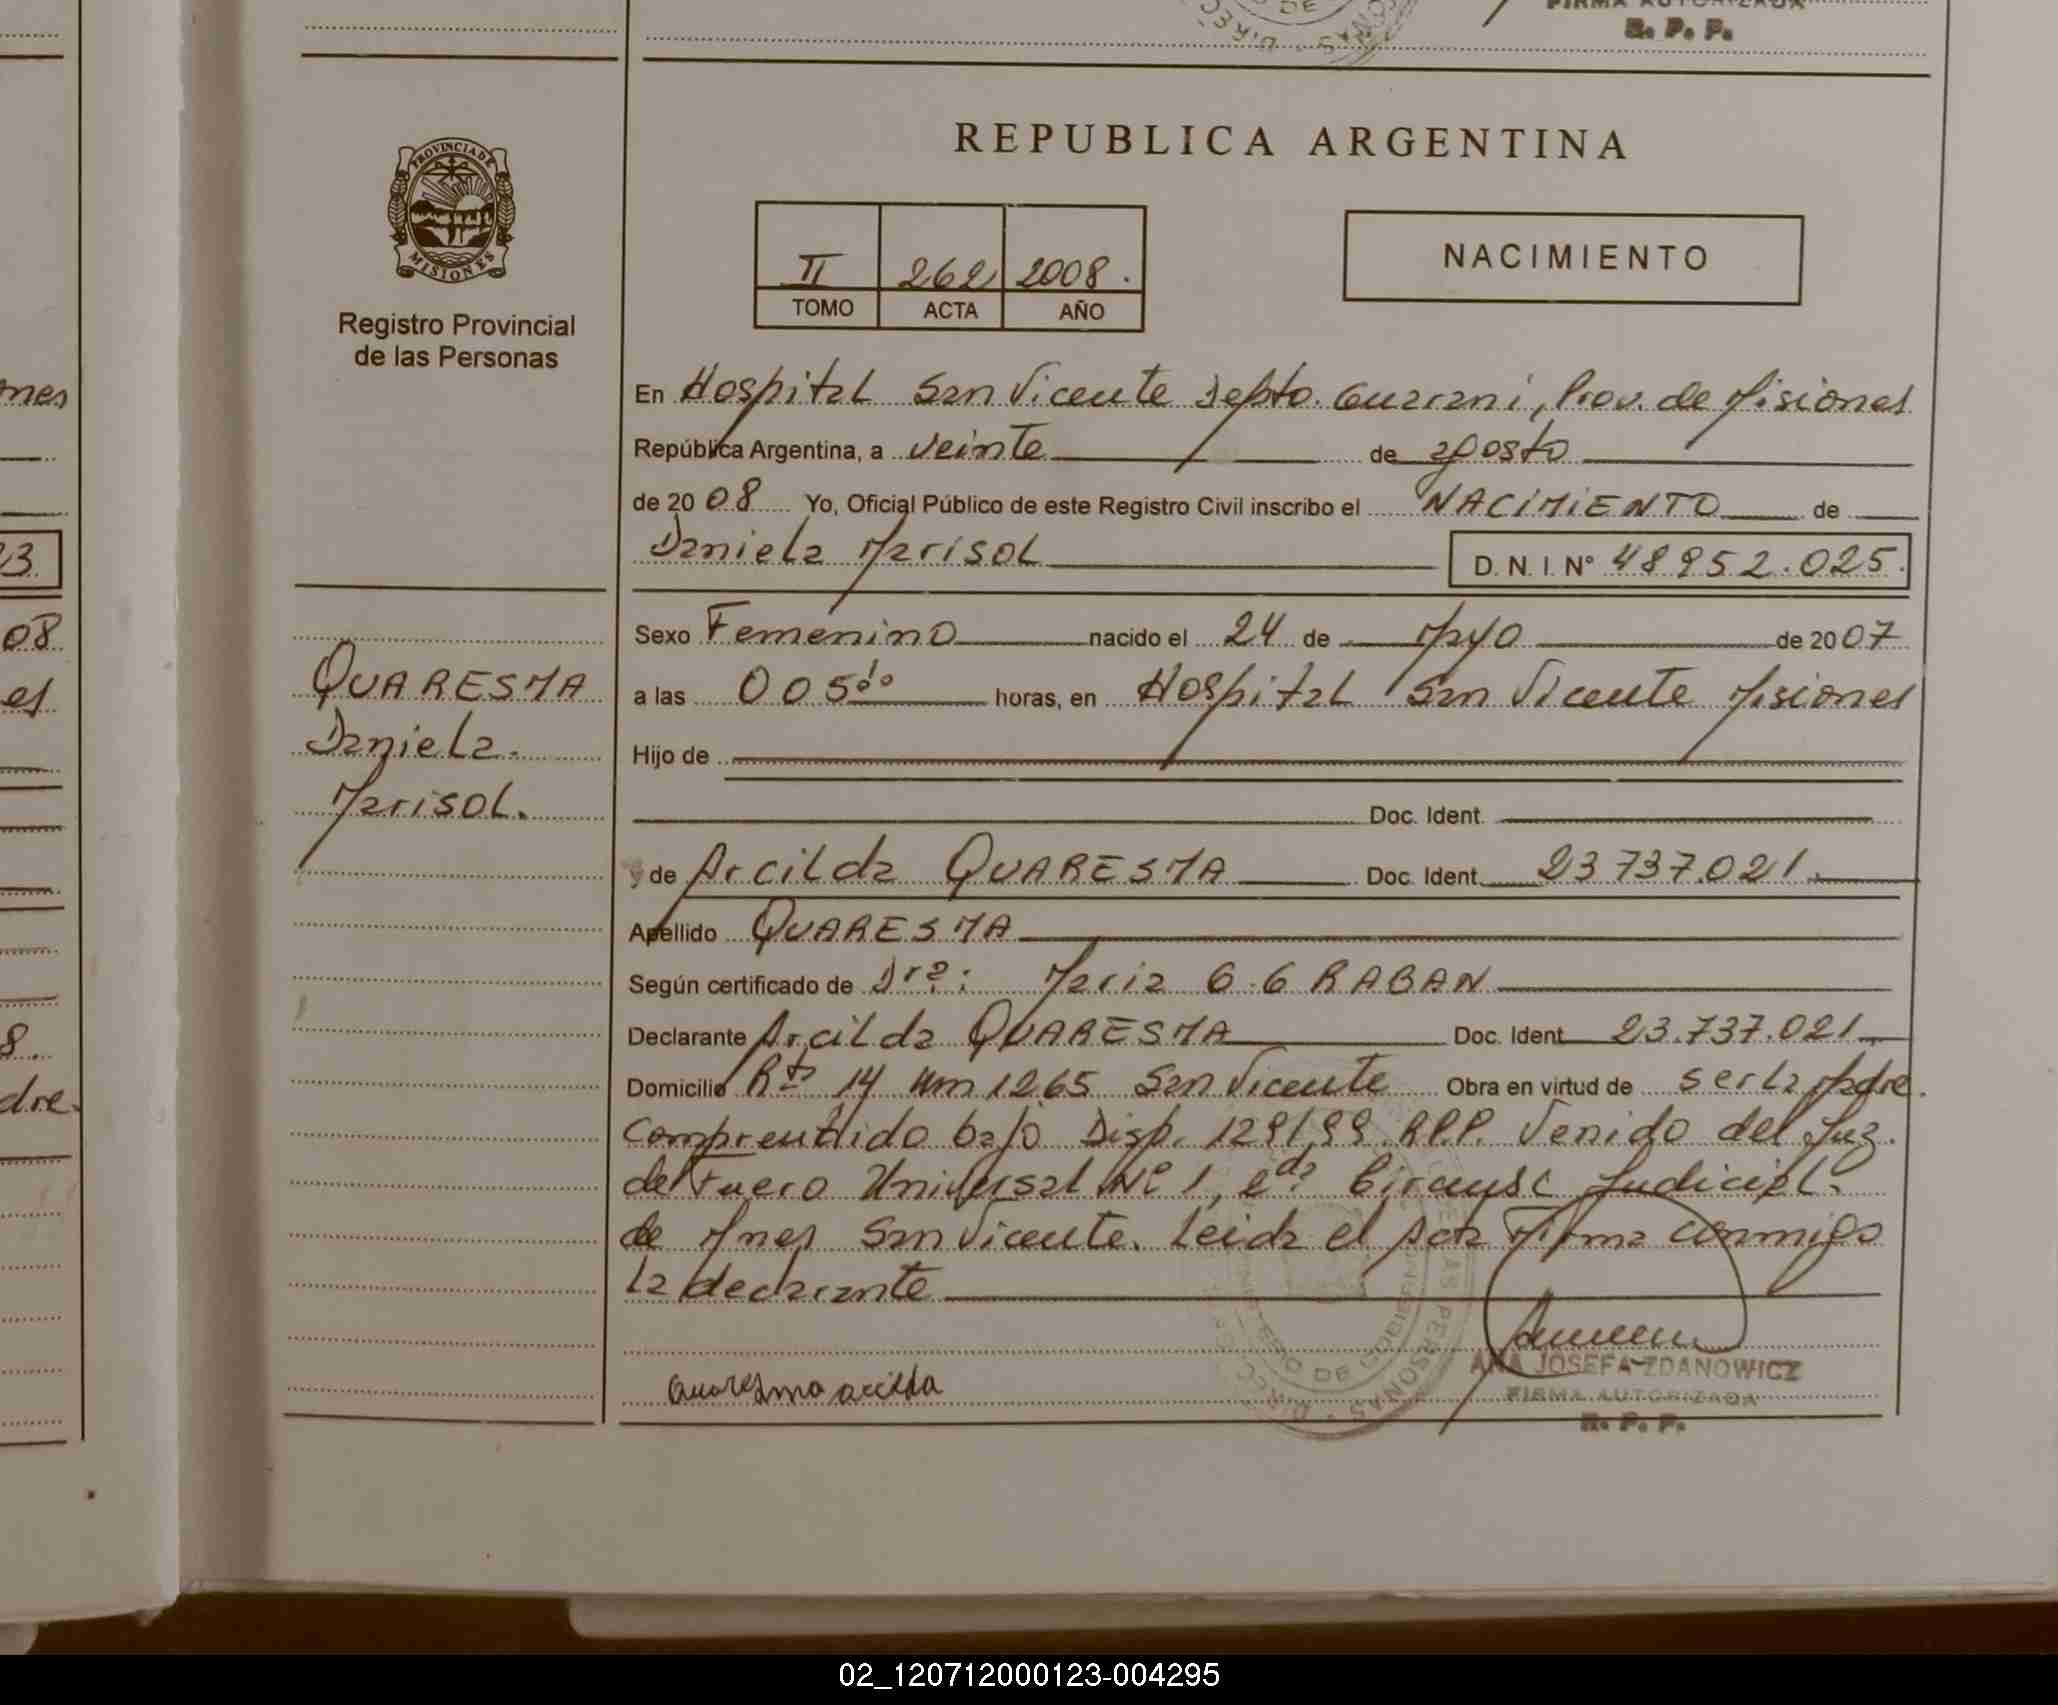 FIRMA AUTORIZADA
R. P. P.
REPUBLICA ARGENTINA
PROVINCIA DE
MISIONES
Registro Provincial
de las Personas
II 262 2008.
TOMO ACTA AÑO
NACIMIENTO
En Hospital San Vicente Depto. Guarani, Prov. de Misiones
República Argentina, a veinte de agosto
de 2008 Yo, Oficial Público de este Registro Civil inscribo el NACIMIENTO de
Daniela Marisol D. N. I. N° 48952.025.
Sexo Femenino nacido el 24 de Mayo de 2007
a las 005 horas, en Hospital San Vicente Misiones
Hijo de
Doc. Ident.
QUARESMA
Daniela.
Marisol.
y de Arcilda QUARESMA Doc. Ident. 23737.021.
Apellido QUARESMA
Según certificado de Dra: Maria G. G RABAN
Declarante Arcilda QUARESMA Doc. Ident. 23.737.021
Domicilio Rta 14 Km 1265 San Vicente Obra en virtud de ser la Madre.
Comprendido bajo Disp. 129/99 R.P.P. Venido del Juz.
de Fuero Universal N° 1, 2da Circunsc Judicial.
de Mnes San Vicente. Leida el Acta Firma conmigo
la declarante
Quaresma arcilda
ANA JOSEFA ZDANOWICZ
FIRMA AUTORIZADA
R. P. P.
nes
23
08
es
8.
dre.
02_120712000123-004295